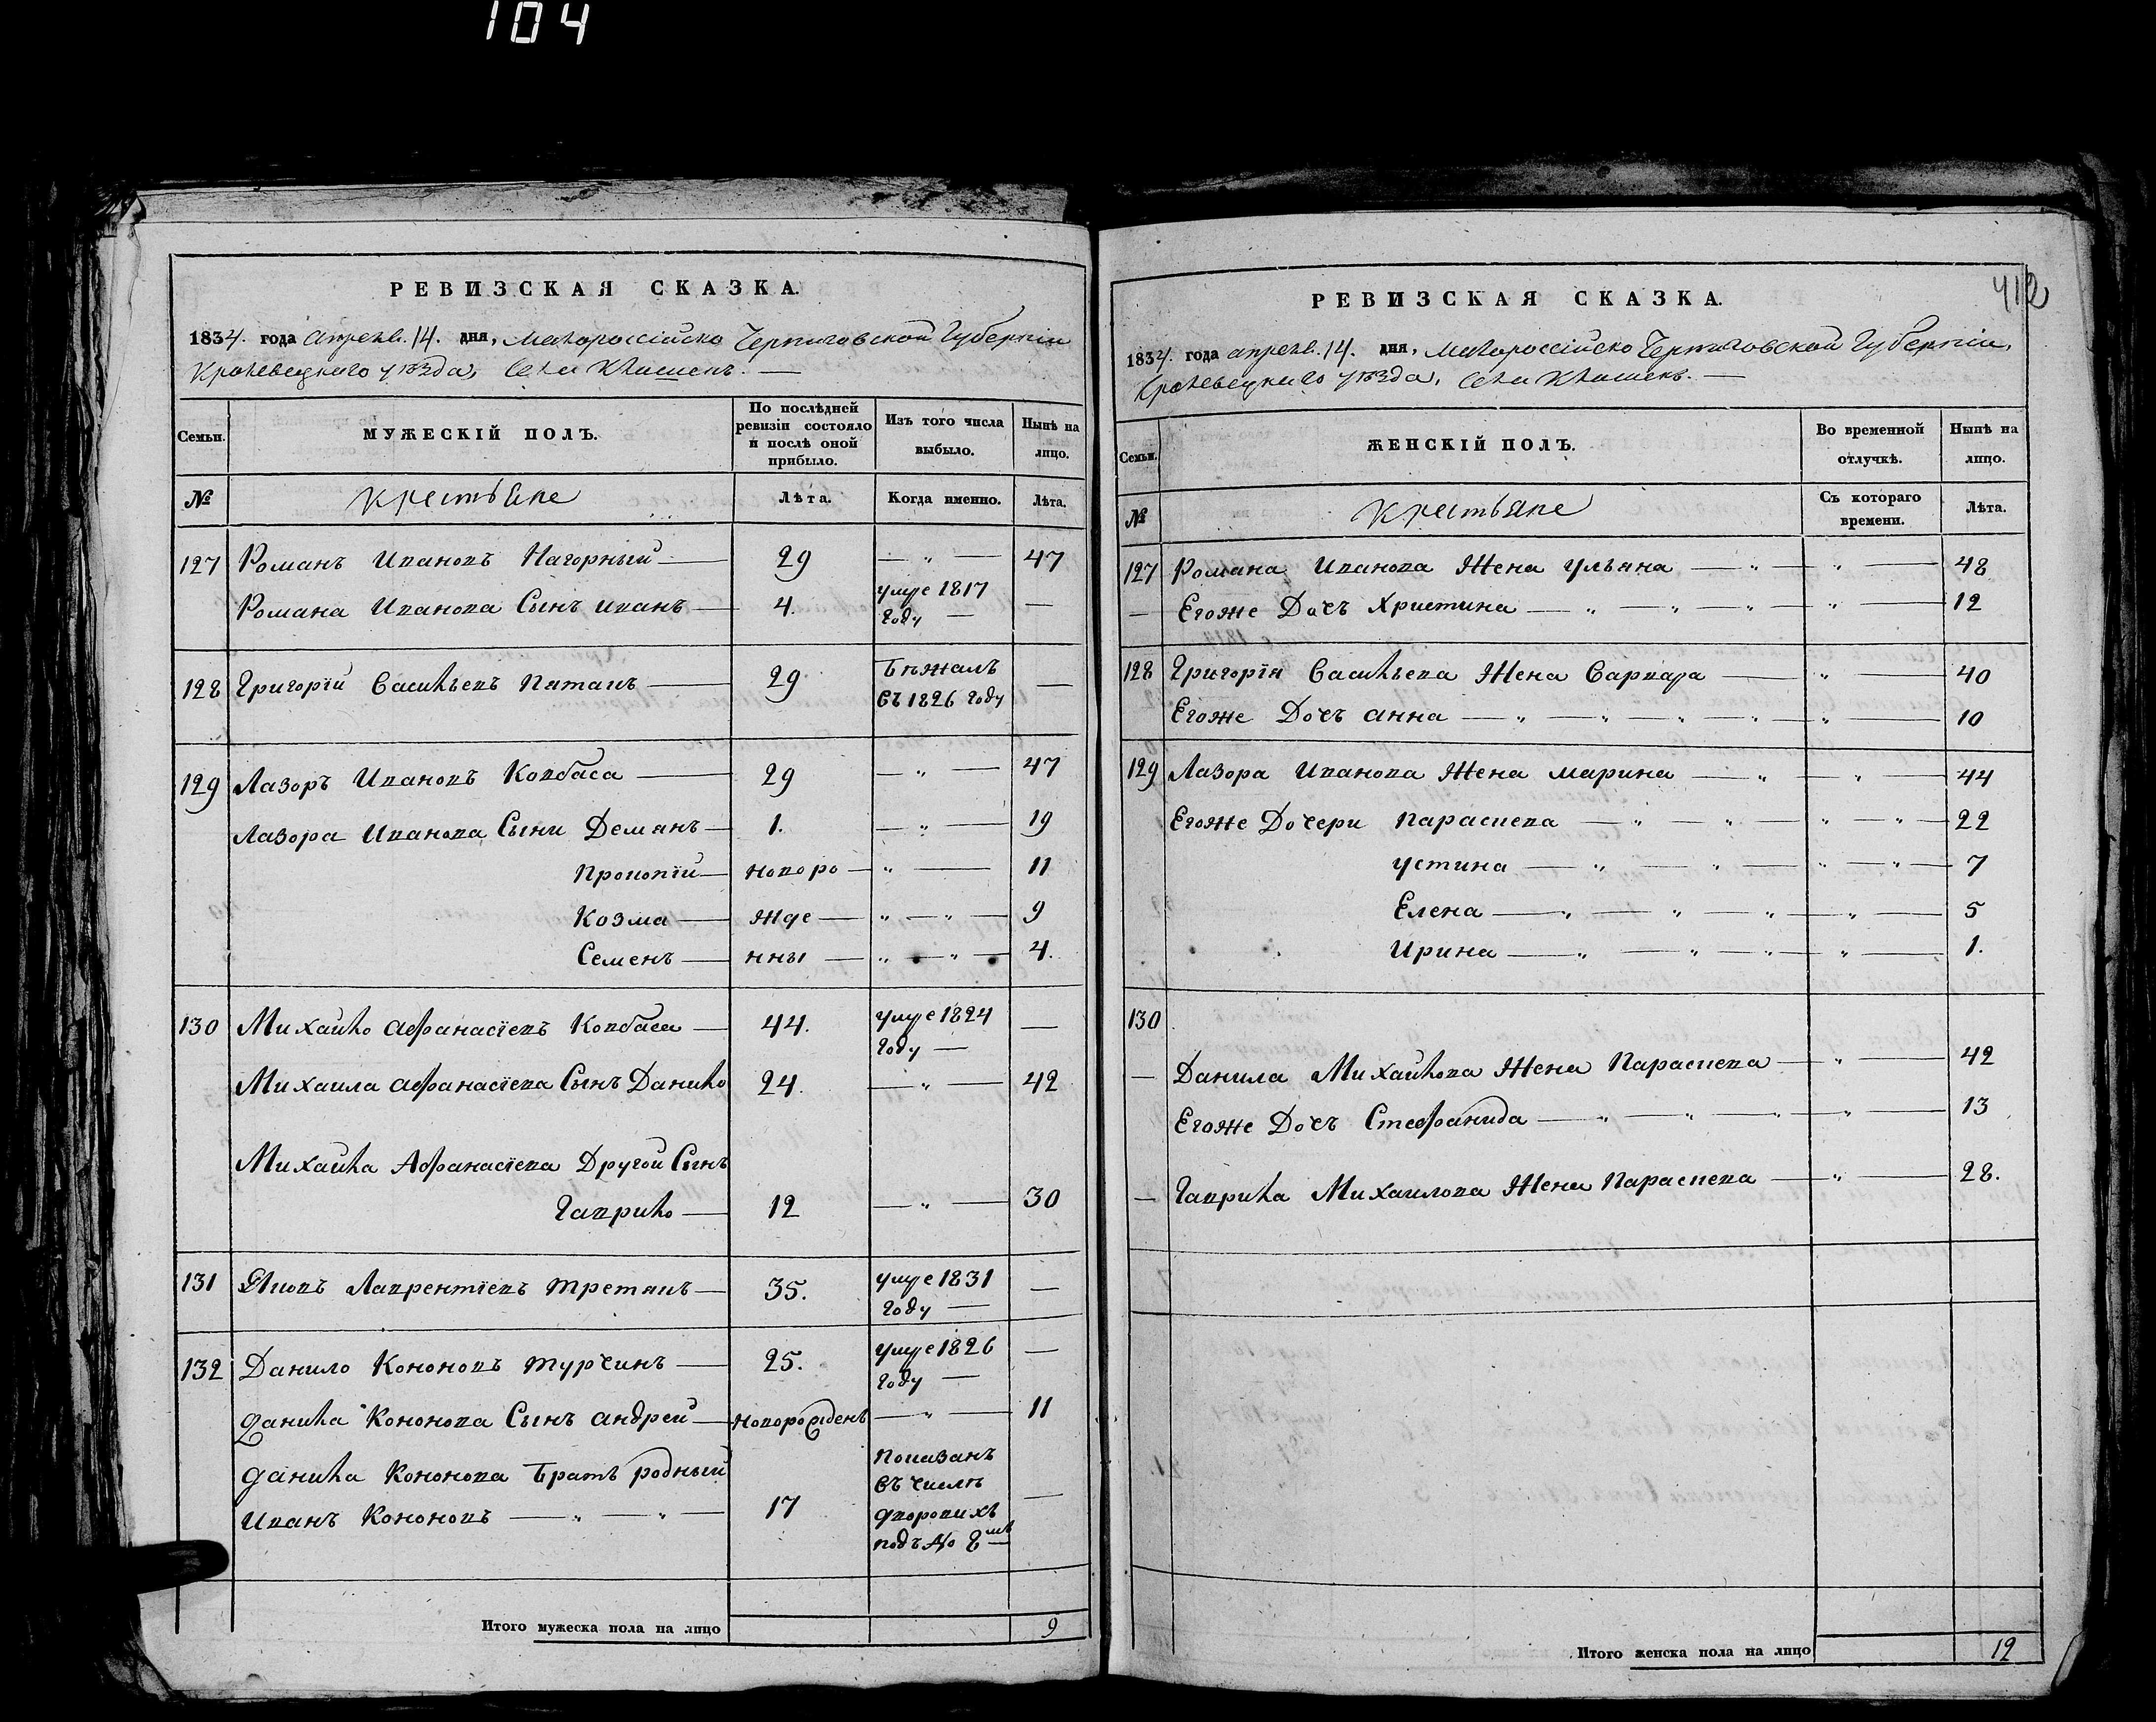 104
РЕВИЗСКАЯ СКАЗКА.
1834. года апрелѣ. 14. дня, Малороссійско Черниговской Губерніи
Кролевецкаго уѣзда, Села Клишекъ. —
Семьи.
МУЖЕСКІЙ ПОЛЪ.
По послѣдней ревизіи состояло и послѣ оной прибыло.
Изъ того числа выбыло.
Нынѣ на лицо.
№ Крестьяне Лѣта. Когда именно. Лѣта.
127 Романъ Ивановъ Нагорный — 29 — „ — 47
Романа Иванова Сынъ иванъ — 4. умре 1817 году — —
128 Григорій Васильевъ Пятакъ — 29 Бѣжалъ въ 1826 году —
129 Лазоръ Ивановъ Ковбаса — 29 — „ — 47
Лазора Иванова Сыни Демянъ — 1. — „ — 19
Прокопій — новоро — „ — 11
Козма — жде — „ — „ — 9
Семенъ — нны — „ — „ — 4.
130 Михайло Афанасіевъ Ковбаса — 44. умре 1824 году — —
Михаила Афанасіева Сынъ Данило 24. — „ — 42
Михайла Афанасіева Другой Сынъ
Гаврило — 12 — „ — 30
131 Яковъ Лаврентіевъ Третякъ — 35. умре 1831 году — —
132 Данило Кононовъ Турчинъ — 25. умре 1826 году — —
Данила Кононова Сынъ андрей — новорожденъ — „ — 11
Данила Кононова Братъ родный
Иванъ Кононовъ — „ — „ — 17 Показанъ въ числѣ дворовихъ подъ №  —
Итого мужеска пола на лицо 9
412
РЕВИЗСКАЯ СКАЗКА.
1834. года апрелѣ. 14. дня, Малороссійско Черниговской Губерніи,
Кролевецкаго уѣзда, Села Клишекъ. —
Семьи.
ЖЕНСКІЙ ПОЛЪ.
Во временной отлучкѣ.
Нынѣ на лицо.
№ Крестьяне Съ котораго времени. Лѣта.
127 Романа Иванова Жена Ульяна — „ — „ — 48
— Егоже Дочъ Христина — „ — „ — „ — „ — 12
128 Григорія Васильева Жена Варвара — „ — 40
Егоже Дочъ анна — „ — „ — „ — „ — „ — 10
129 Лазора Иванова Жена марина — „ — „ — 44
Егоже Дочери Параскева — „ — „ — „ — „ — 22
Устина — „ — „ — „ — „ — 7
Елена — „ — „ — „ — „ — 5
Ирина — „ — „ — „ — „ — 1.
130
— Данила Михайлова Жена Параскева — „ — 42
Егоже Дочъ Стефанида — „ — „ — „ — „ — 13
— Гаврила Михаилова Жена Параскева — „ — 28.
Итого женска пола на лицо 12